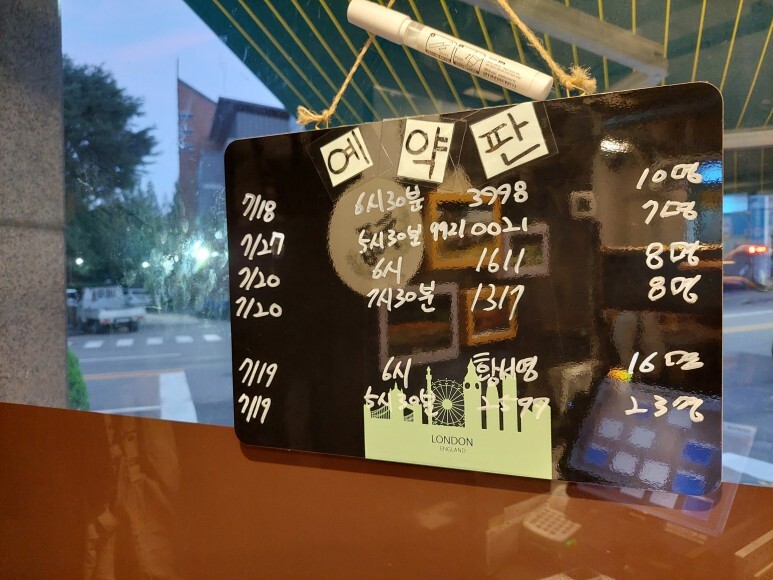 예약판
7/18 6시30분 3998 10명
7/27 5시30분 9921 0021 7명
7/20 6시 1611 8명
7/20 7시30분 1317 8명
7/19 6시 황서영 16명
7/19 5시30분 2599 23명
LONDON
ENGLAND